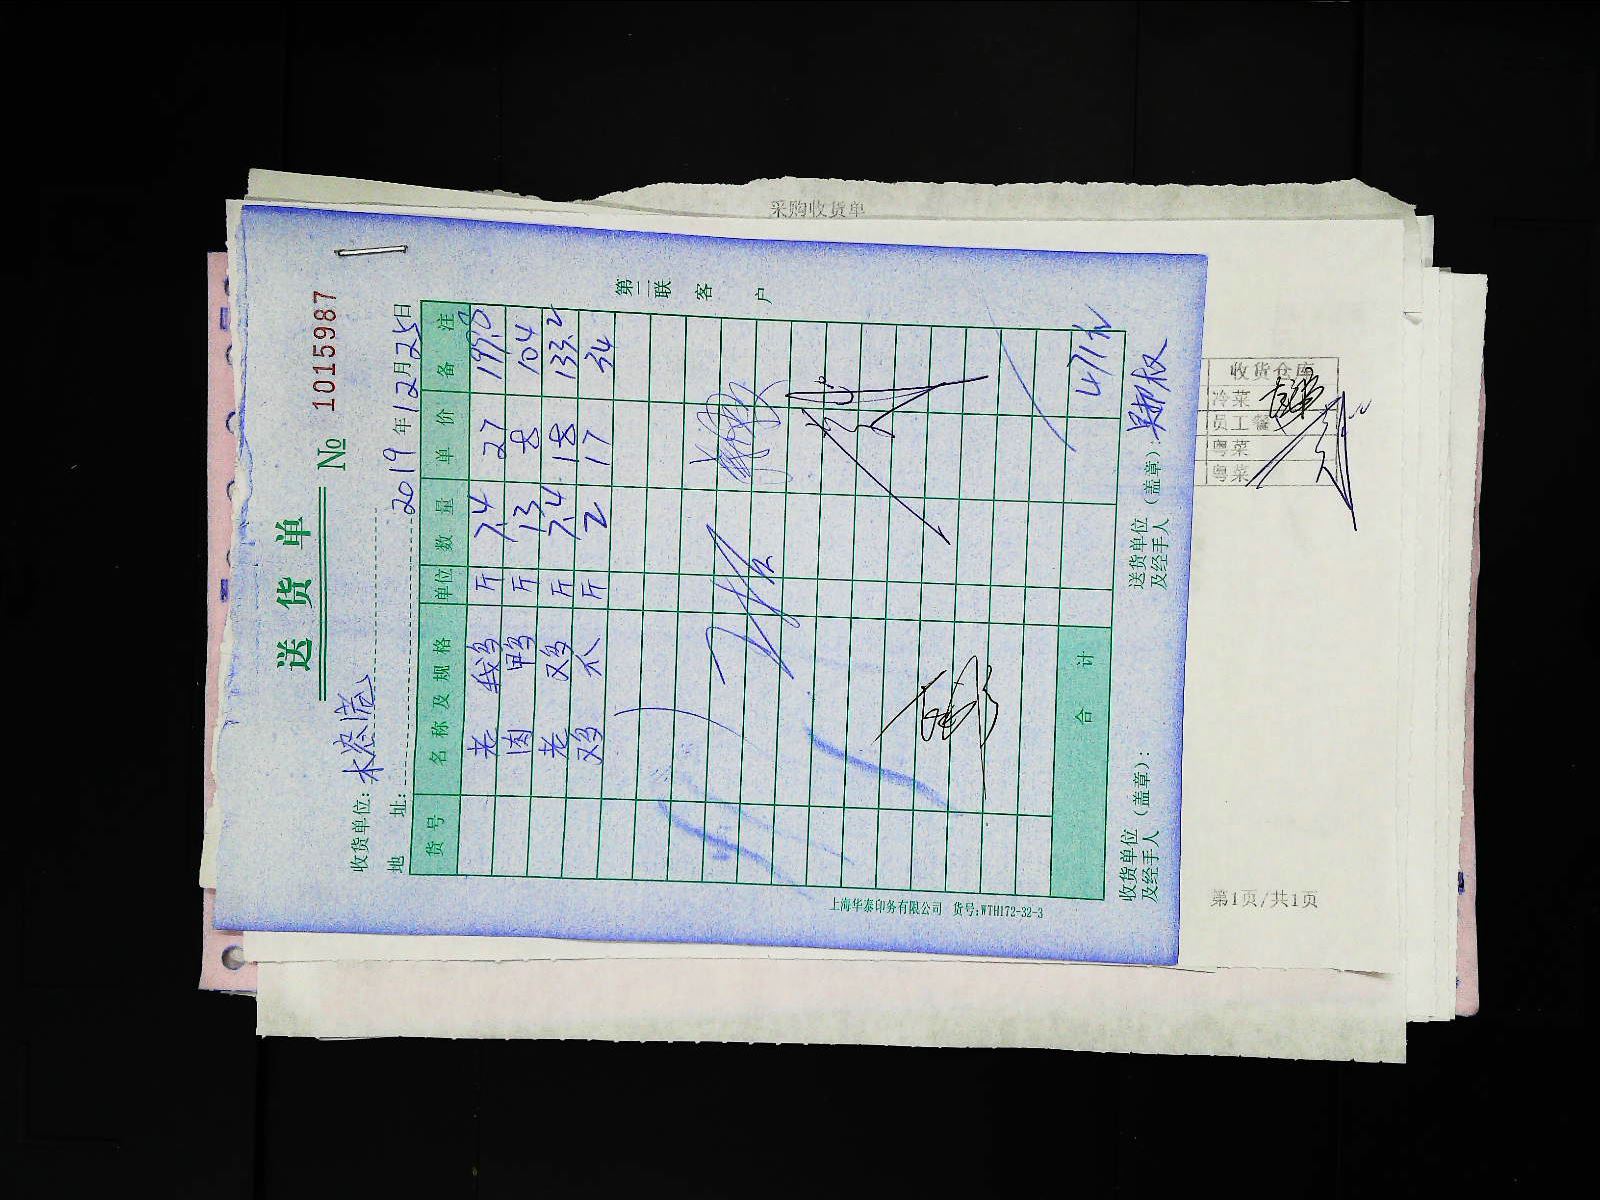 采购收货单
送货单
№ 1015987
收货单位:
地 址:
2019年12月25日
货号 名称及规格 单位 数量 单价 备注
老 鸡 斤 7.4 27 199.8
肉鸭 斤 13 8 104
老鸡 斤 7.4 18 133.2
鸡 斤 2 17 34
合 计 471元
第二联 客 户
收货单位(盖章):
及经手人
送货单位(盖章):
及经手人
上海华泰印务有限公司 货号:WTH172-32-3
收货仓库
冷菜
员工餐
粤菜
粤菜
第1页/共1页